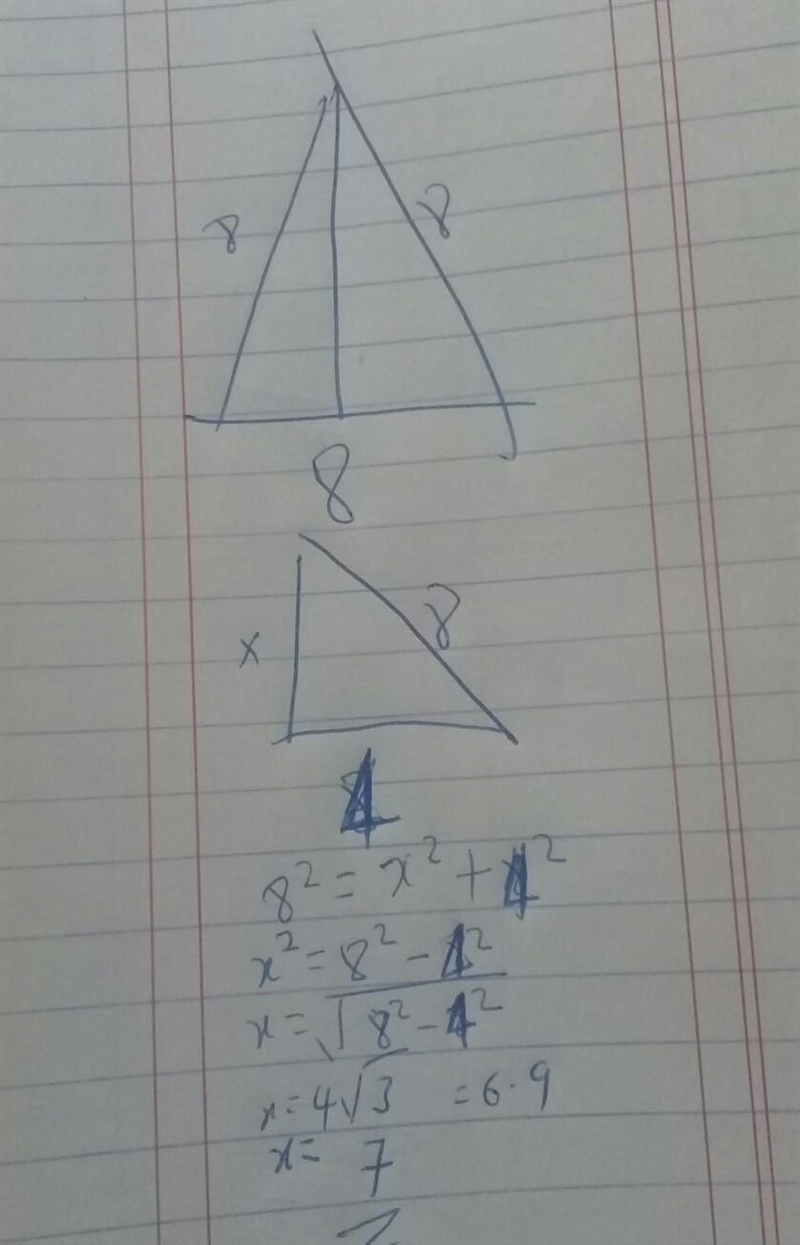 8 8
8
x 8
4
8² = x² + 4²
x² = 8² - 4²
x = √8² - 4²
x = 4√3 = 6.9
x = 7